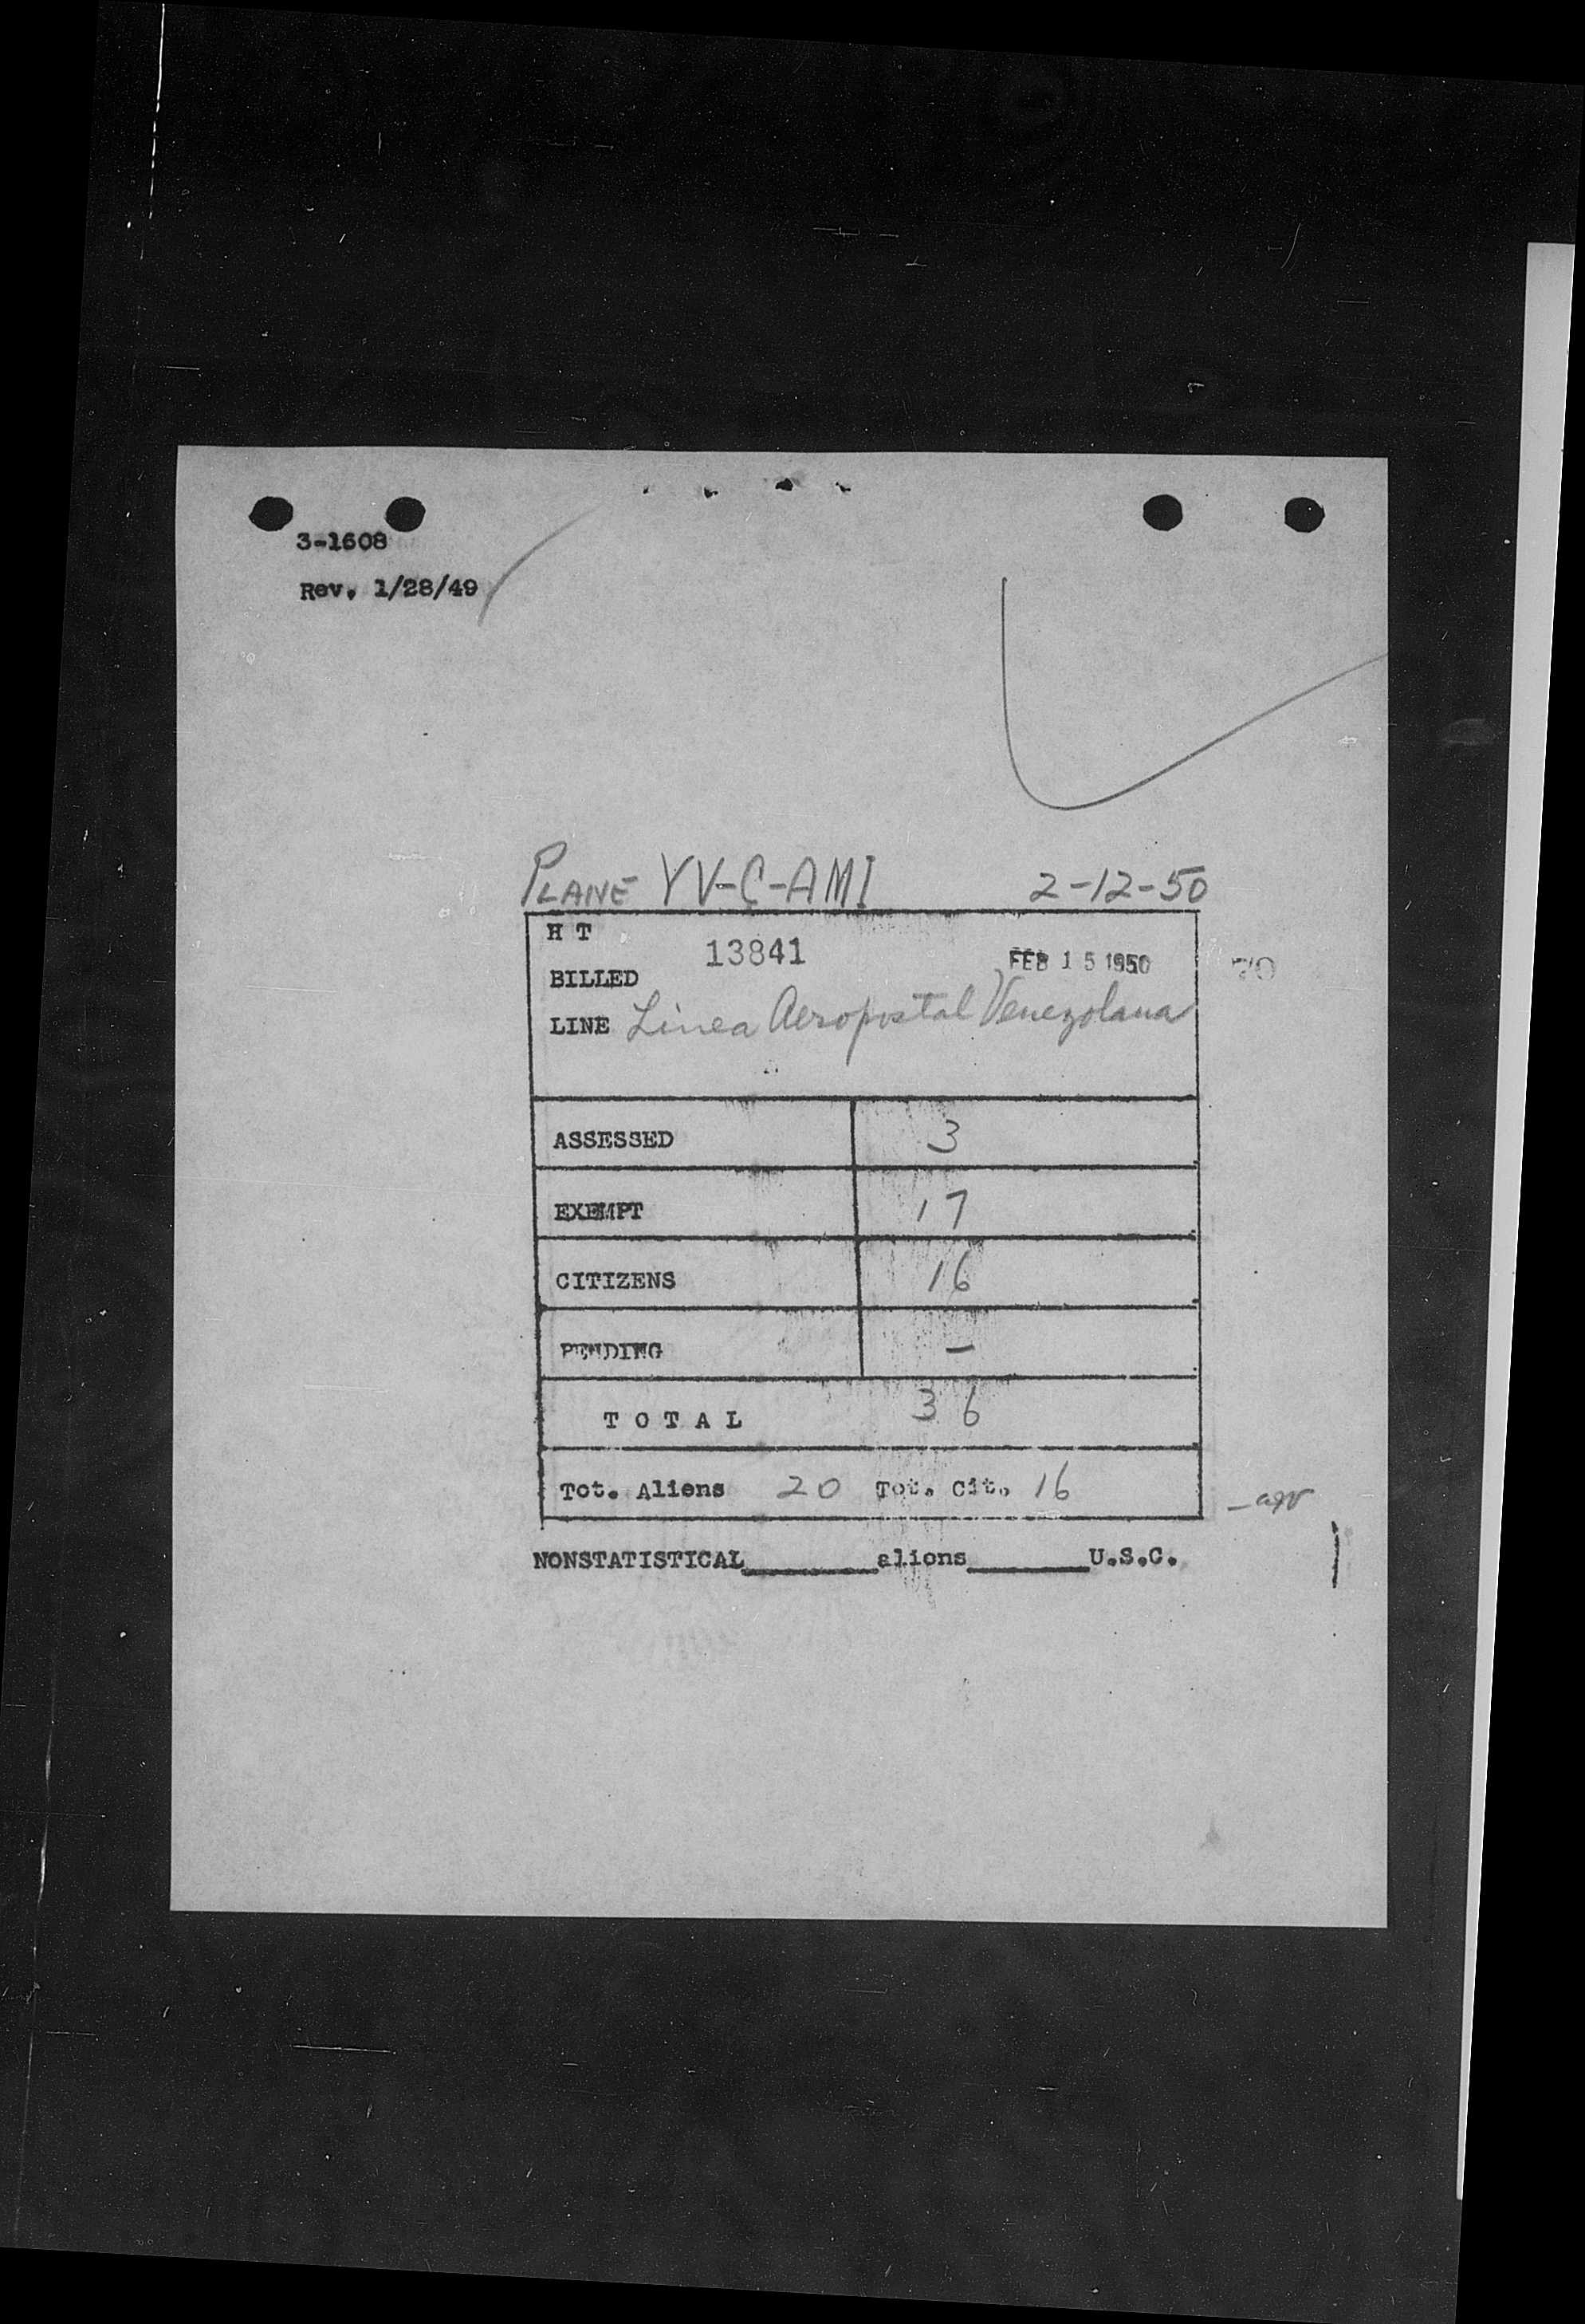 3-1608
Rev. 1/28/49
PLANE YV-C-AMI 2-12-50
H T
13841 FEB 15 1950
BILLED
LINE Linea Aeropostal Venezolana
ASSESSED 3
EXEMPT 17
CITIZENS 16
PENDING -
T O T A L 36
Tot. Aliens 20 Tot. Cit. 16
NONSTATISTICAL________aliens________U.S.C.